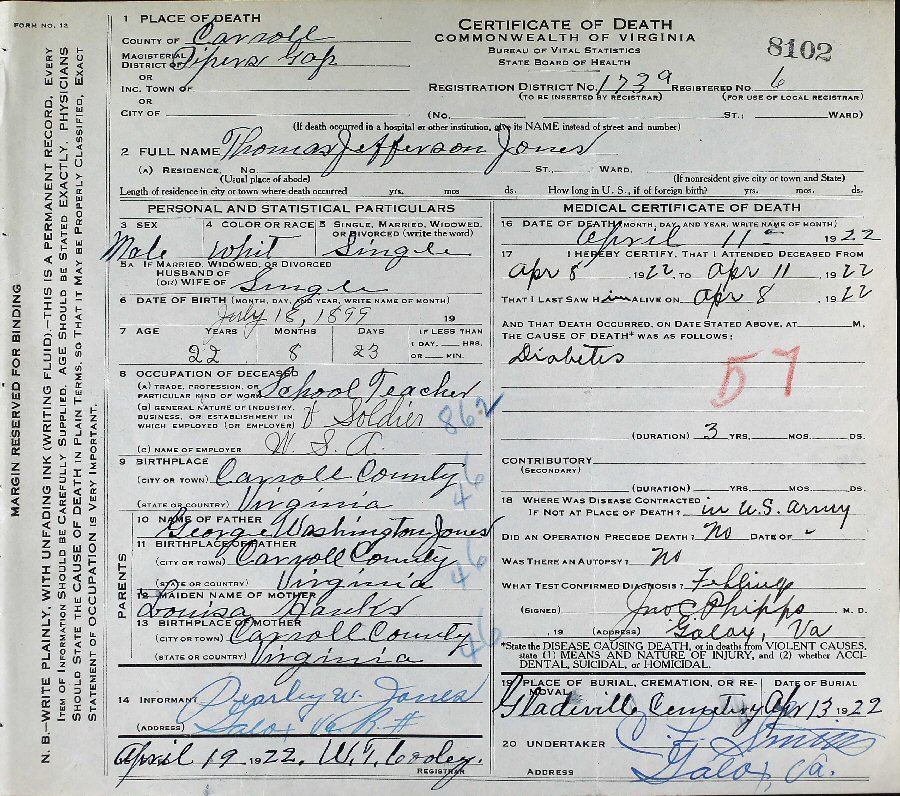 FORM NO. 12
MARGIN RESERVED FOR BINDING
N. B.—WRITE PLAINLY, WITH UNFADING INK (WRITING FLUID).—THIS IS A PERMANENT RECORD. EVERY
ITEM OF INFORMATION SHOULD BE CAREFULLY SUPPLIED. AGE SHOULD BE STATED EXACTLY. PHYSICIANS
SHOULD STATE THE CAUSE OF DEATH IN PLAIN TERMS, SO THAT IT MAY BE PROPERLY CLASSIFIED. EXACT
STATEMENT OF OCCUPATION IS VERY IMPORTANT.
1 PLACE OF DEATH
COUNTY OF Carroll
MAGISTERIAL DISTRICT OF Pipers Gap
OR
INC. TOWN OF
OR
CITY OF
CERTIFICATE OF DEATH
COMMONWEALTH OF VIRGINIA
BUREAU OF VITAL STATISTICS
STATE BOARD OF HEALTH
8102
REGISTRATION DISTRICT NO. 173a REGISTERED NO. 6
(TO BE INSERTED BY REGISTRAR) (FOR USE OF LOCAL REGISTRAR)
(No. ST.; WARD)
(If death occurred in a hospital or other institution, give its NAME instead of street and number)
2 FULL NAME Thomas Jefferson Jones
(A) RESIDENCE. No. ST., WARD.
(Usual place of abode) (If nonresident give city or town and State)
Length of residence in city or town where death occurred yrs. mos ds. How long in U. S., if of foreign birth? yrs. mos. ds.
PERSONAL AND STATISTICAL PARTICULARS
3 SEX 4 COLOR OR RACE 5 SINGLE, MARRIED, WIDOWED, OR DIVORCED (write the word)
Male Whit Single
5A IF MARRIED, WIDOWED, OR DIVORCED
HUSBAND OF
(OR) WIFE OF Single
6 DATE OF BIRTH (MONTH, DAY, AND YEAR, WRITE NAME OF MONTH)
July 18, 1899 19
7 AGE YEARS MONTHS DAYS IF LESS THAN
1 DAY, HRS.
OR MIN.
22 8 23
8 OCCUPATION OF DECEASED
(A) TRADE, PROFESSION, OR PARTICULAR KIND OF WORK School Teacher
(B) GENERAL NATURE OF INDUSTRY, BUSINESS, OR ESTABLISHMENT IN WHICH EMPLOYED (OR EMPLOYER) & Soldier 862
(C) NAME OF EMPLOYER U. S. A.
9 BIRTHPLACE
(CITY OR TOWN) Carroll County
(STATE OR COUNTRY) Virginia 46
PARENTS
10 NAME OF FATHER George Washington Jones
11 BIRTHPLACE OF FATHER
(CITY OR TOWN) Carroll County
(STATE OR COUNTRY) Virginia 46
12 MAIDEN NAME OF MOTHER Louisa Hanks
13 BIRTHPLACE OF MOTHER
(CITY OR TOWN) Carroll County
(STATE OR COUNTRY) Virginia 46
14 INFORMANT Pearley W. Jones
(ADDRESS) Galax Va R#
April 19, 1922. W. T. Cooley.
REGISTRAR
MEDICAL CERTIFICATE OF DEATH
16 DATE OF DEATH (MONTH, DAY, AND YEAR, WRITE NAME OF MONTH)
April 11 1922
17 I HEREBY CERTIFY, THAT I ATTENDED DECEASED FROM
Apr 8, 1922, TO Apr 11, 1922
THAT I LAST SAW Him ALIVE ON Apr 8, 1922
AND THAT DEATH OCCURRED, ON DATE STATED ABOVE, AT M.
THE CAUSE OF DEATH* WAS AS FOLLOWS:
Diabetis
57
(DURATION) 3 YRS. MOS. DS.
CONTRIBUTORY
(SECONDARY)
(DURATION) YRS. MOS. DS.
18 WHERE WAS DISEASE CONTRACTED
IF NOT AT PLACE OF DEATH? in U.S. army
DID AN OPERATION PRECEDE DEATH? No DATE OF -
WAS THERE AN AUTOPSY? No
WHAT TEST CONFIRMED DIAGNOSIS? Fehlings
(SIGNED) Jno. C. Phipps M. D.
, 19 (ADDRESS) Galax, Va
*State the DISEASE CAUSING DEATH, or in deaths from VIOLENT CAUSES,
state (1) MEANS AND NATURE OF INJURY, and (2) whether ACCI-
DENTAL, SUICIDAL, or HOMICIDAL.
19 PLACE OF BURIAL, CREMATION, OR RE-MOVAL DATE OF BURIAL
Gladeville Cemetry Apr 13 1922
20 UNDERTAKER
ADDRESS Galax, Va.